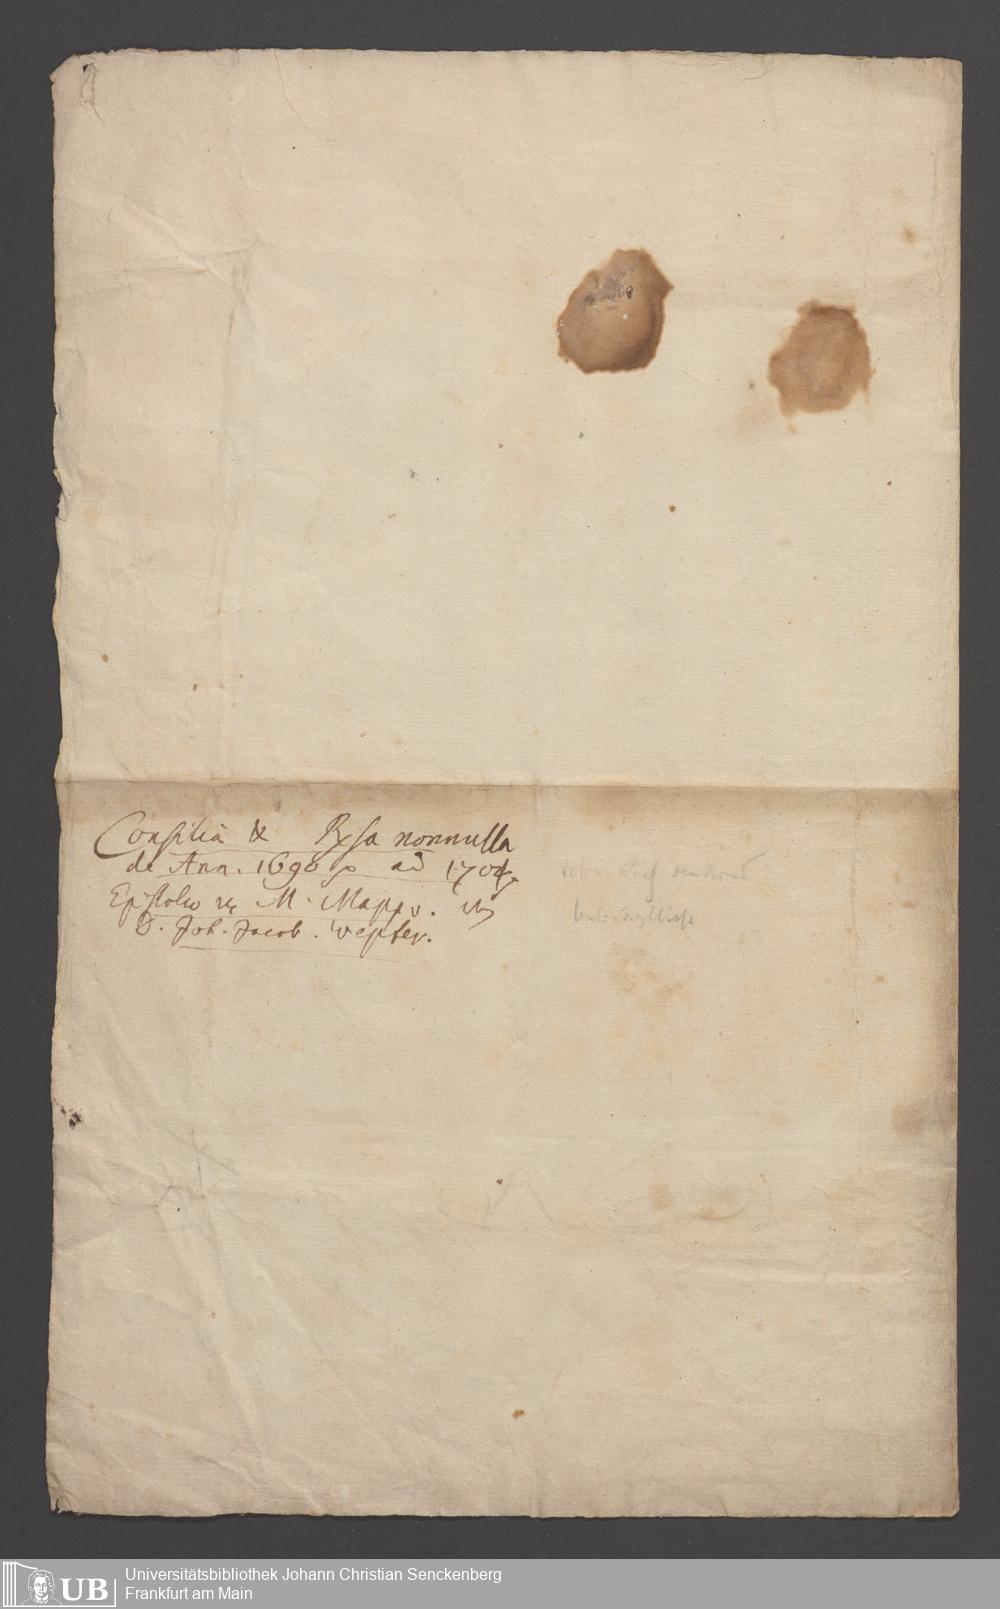 Consilia & Rxsa nonnulla
de Ann. 1698 ad 1704
Epistolae M. Mappy.
D. Joh. Jacob. Wepfer.
UB
Universitätsbibliothek Johann Christian Senckenberg
Frankfurt am Main